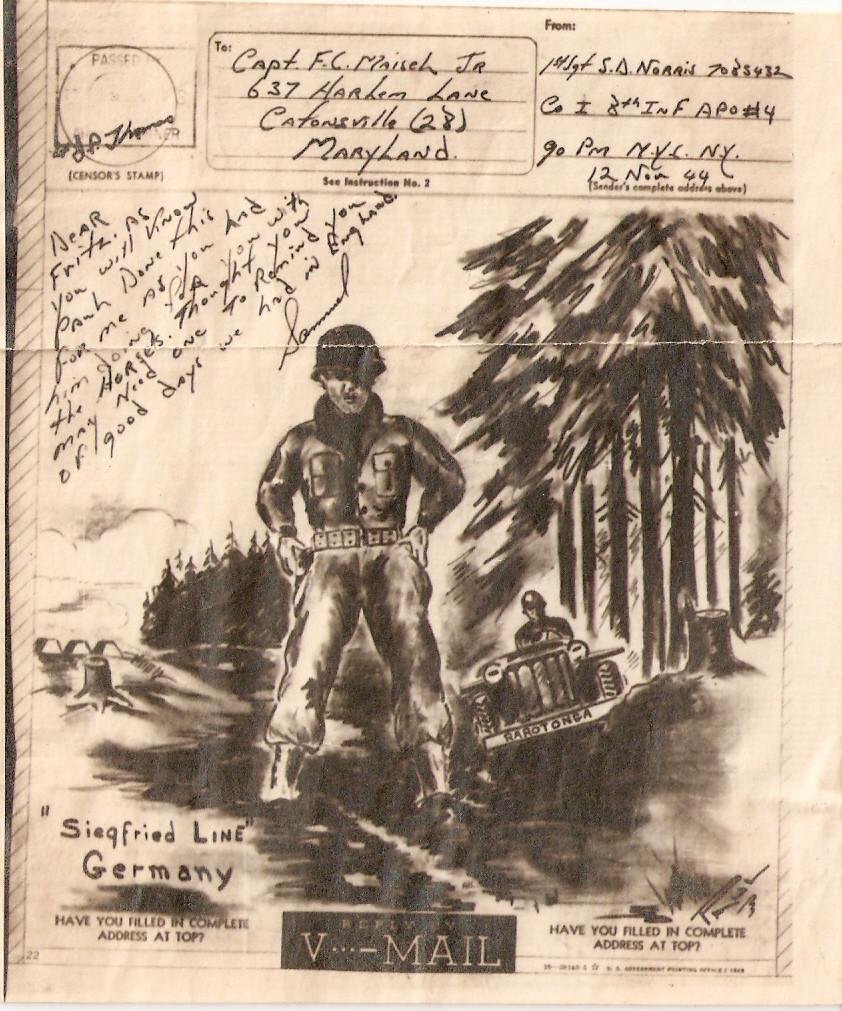 PASSED
Thomas
(CENSOR'S STAMP)
To:
Capt. F.C. Maisch Jr
637 Harlem Lane
Catonsville (28)
Maryland.
See Instruction No. 2
From:
1st Sgt S.D. Norris 7083432
Co I 8th Inf APO #4
90 Pm N.Y.C. N.Y.
12 Nov 44
(Sender's complete address above)
Dear
Fritz. As
you will know
Done this
for me as you had
him doing for you with
the Horses. Thought you
may need one to Remind you
of good days we had in England.
Samuel
RAROTONGA
"Siegfried Line"
Germany
HAVE YOU FILLED IN COMPLETE
ADDRESS AT TOP?
V···–MAIL
HAVE YOU FILLED IN COMPLETE
ADDRESS AT TOP?
22
U. S. GOVERNMENT PRINTING OFFICE